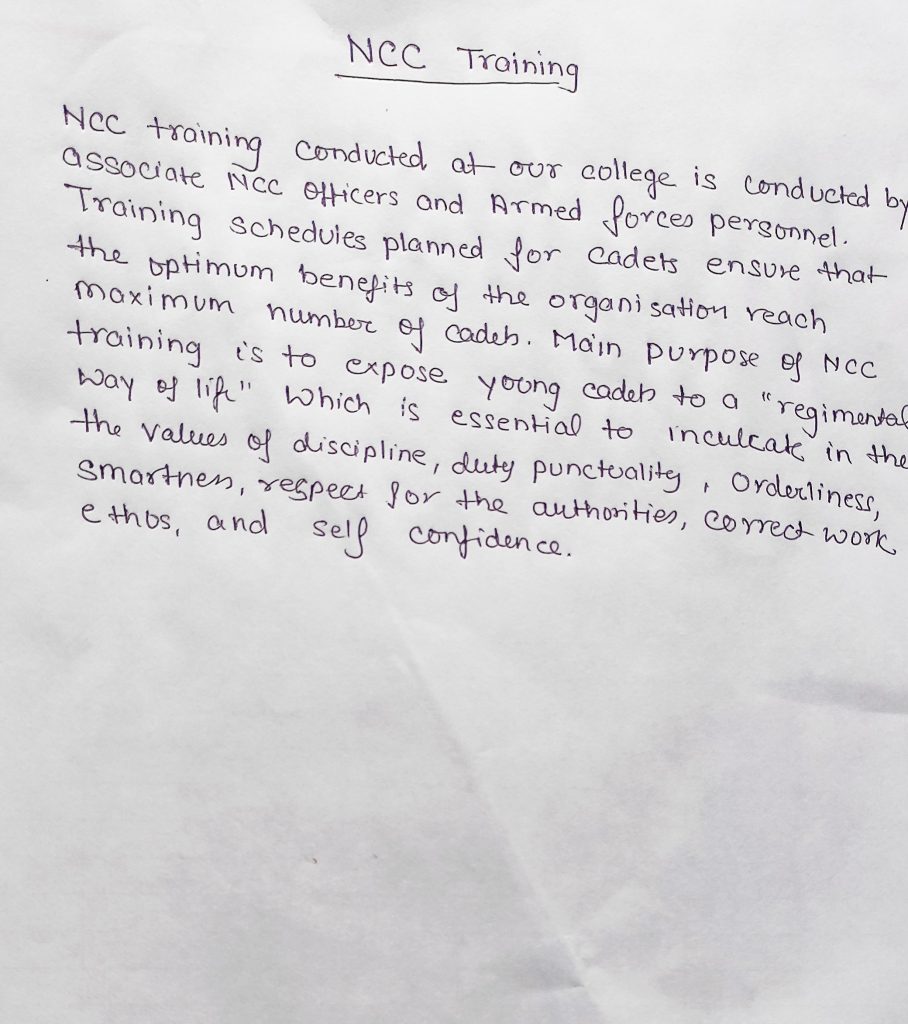 NCC Training
NCC training conducted at our college is conducted by
associate NCC officers and Armed forces personnel.
Training schedules planned for cadets ensure that
the optimum benefits of the organisation reach
maximum number of cadets. Main purpose of NCC
training is to expose young cadets to a "regimental
way of life" which is essential to inculcate in the
the values of discipline, duty punctuality, Orderliness,
smartness, respect for the authorities, correct work
ethos, and self confidence.